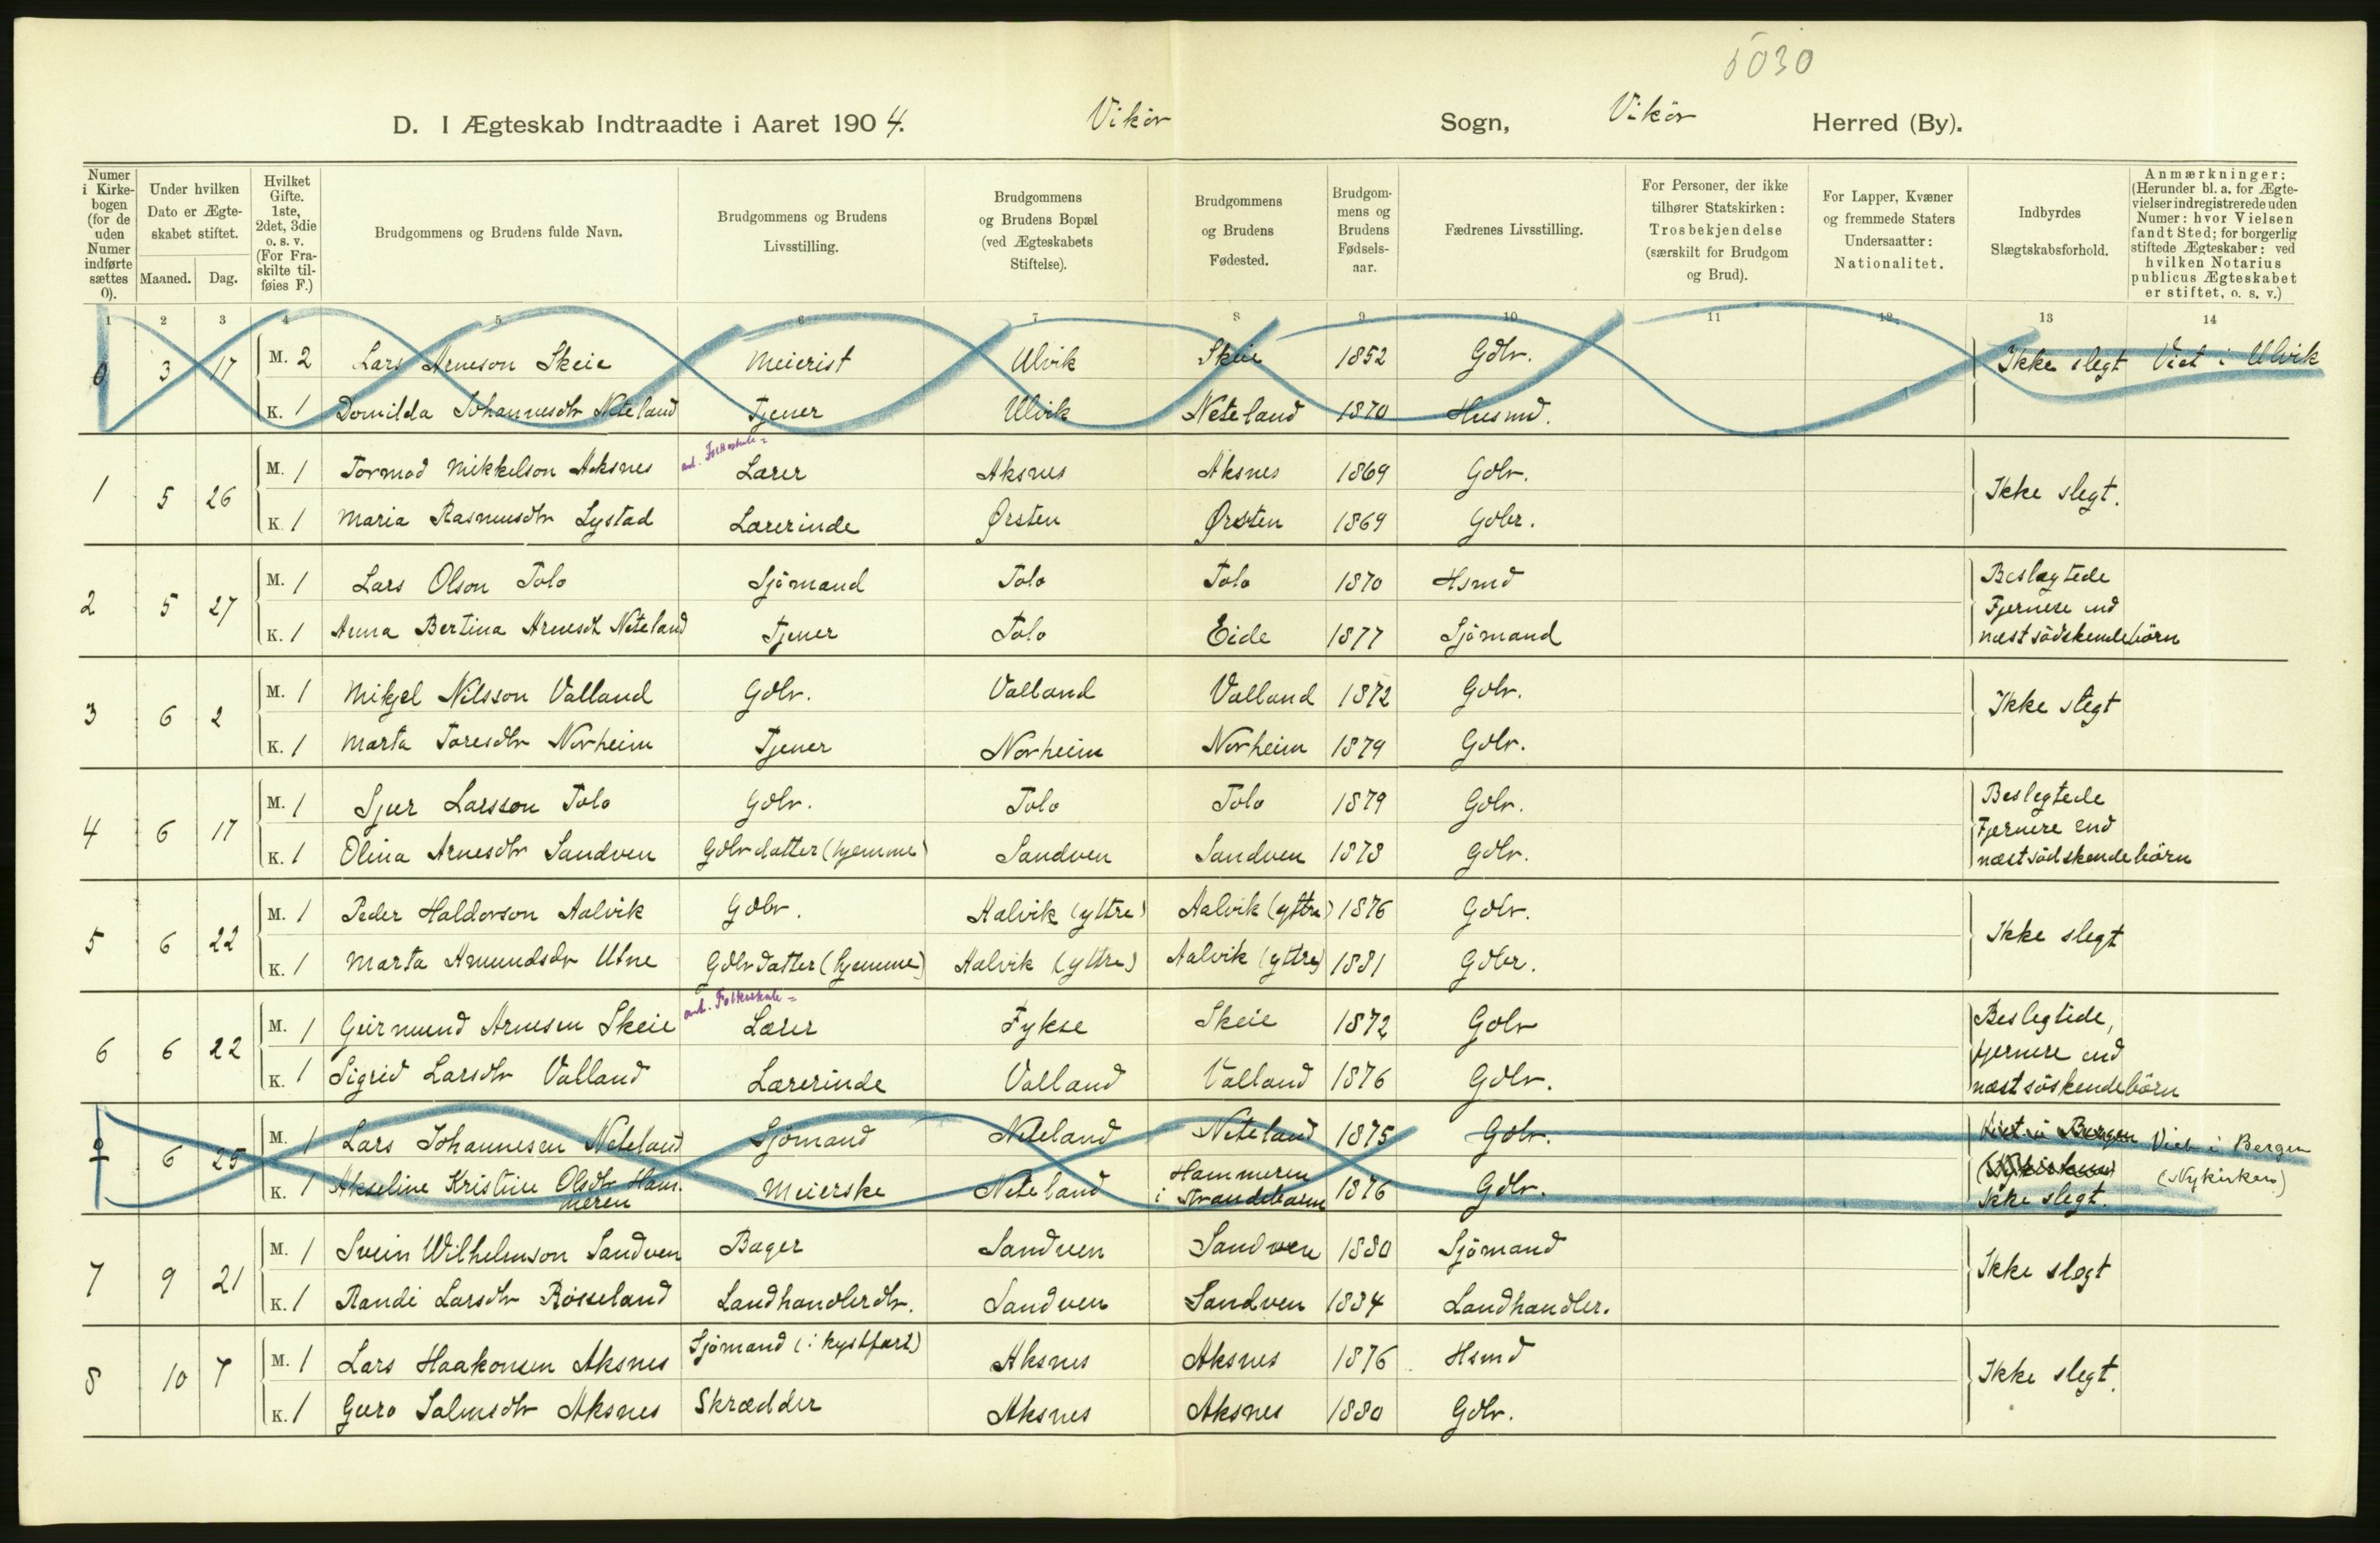 5030
D. I Ægteskab Indtraadte i Aaret 1904. Vikör Sogn, Vikör Herred (By).
Numer i Kirkebogen (for de uden Numer indførte sættes 0).
Under hvilken Dato er Ægteskabet stiftet.
Maaned. Dag.
Hvilket Gifte. 1ste, 2det, 3die o. s. v. (For Fraskilte tilføies F.)
Brudgommens og Brudens fulde Navn.
Brudgommens og Brudens Livsstilling.
Brudgommens og Brudens Bopæl (ved Ægteskabets Stiftelse).
Brudgommens og Brudens Fødested.
Brudgommens og Brudens Fødselsaar.
Fædrenes Livsstilling.
For Personer, der ikke tilhører Statskirken: Trosbekjendelse (særskilt for Brudgom og Brud).
For Lapper, Kvæner og fremmede Staters Undersaatter: Nationalitet.
Indbyrdes Slægtskabsforhold.
Anmærkninger: (Herunder bl. a. for Ægtevielser indregistrerede uden Numer: hvor Vielsen fandt Sted; for borgerlig stiftede Ægteskaber: ved hvilken Notarius publicus Ægteskabet er stiftet, o. s. v.)
1 2 3 4 5 6 7 8 9 10 11 12 13 14
0 3 17 M. 2 Lars Arneson Skeie Meierist Ulvik Skeie 1852 Gdbr. Ikke slegt Viet i Ulvik
K. 1 Domilda Johannesdtr Neteland Tjener Ulvik Neteland 1870 Husmd.
1 5 26 M. 1 Tormod Mikkelson Aksnes Lærer Aksnes Aksnes 1869 Gdbr. Ikke slegt.
K 1 Maria Rasmusdtr Lystad Lærerinde Ørsten Ørsten 1869 Gdbr.
2 5 27 M. 1 Lars Olson Tolo Sjömand Tolo Tolo 1870 Hsmd Beslægtede
Fjernere end
K. 1 Anna Bertina Arnesdt Neteland Tjener Tolo Eide 1877 Sjömand næstsödskendebörn
3 6 2 M. 1 Mikjel Nilsson Valland Gdbr. Valland Valland 1872 Gdbr. Ikke slegt
K. 1 Marta Toresdtr Norheim Tjener Norheim Norheim 1879 Gdbr.
4 6 17 M. 1 Sjur Larsson Tolo Gdbr. Tolo Tolo 1879 Gdbr. Beslegtede
Fjernere end
K. 1 Olina Arnesdtr Sandven Gdbrdatter (hjemme) Sandven Sandven 1878 Gdbr. næstsödskendebörn
5 6 22 M. 1 Peder Haldorson Aalvik Gdbr. Aalvik (yttre) Aalvik (yttre) 1876 Gdbr. Ikke slegt
K. 1 Marta Amundsdr Utne Gdbrdatter (hjemme) Aalvik (yttre) Aalvik (yttre) 1881 Gdbr.
6 6 22 M. 1 Geirmund Arnesen Skeie Lærer Fykse Skeie 1872 Gdbr Beslegtede,
fjernere end
K. 1 Sigrid Larsdtr Valland Lærerinde Valland Valland 1876 Gdbr. næstsöskendebörn
6 25 M. 1 Lars Johannesen Neteland Sjömand Neteland Neteland 1875 Gdbr. Viet i Bergen Viet i Bergen
(Nykirken) (Nykirken)
K. 1 Akseline Kristine Olsdtr Hammeren Meierske Neteland Hammeren i Strandebarm 1876 Gdbr. Ikke slegt.
7 9 21 M. 1 Svein Wilhelmson Sandven Bager Sandven Sandven 1880 Sjömand Ikke slegt
K. 1 Randi Larsdtr Rösseland Landhandlerdtr. Sandven Sandven 1884 Landhandler.
8 10 7 M. 1 Lars Haakonsen Aksnes Sjömand (i kystfart) Aksnes Aksnes 1876 Hsmd Ikke slegt.
K. 1 Guro Salmsdtr Aksnes Skrædder Aksnes Aksnes 1880 Gdbr.